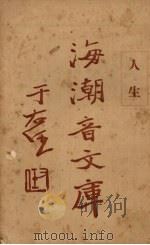 人生
海潮音文庫
于右任
www.mtoou.info